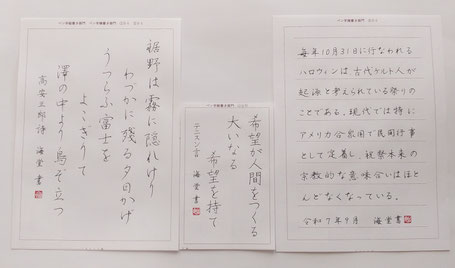 裾野は霧に隠れけり
わづかに残る夕日かげ
うつらふ富士を
よこぎりて
澤の中より鳥ぞ立つ
高安三郎詩 海堂書
希望が人間をつくる
大いなる
希望を持て
テニスン言 海堂書
毎年10月31日に行なわれる
ハロウィンは古代ケルト人が
起源と考えられている祭りの
ことである。現代では特に
アメリカ合衆国で民間行事
として定着し、祝祭本来の
宗教的な意味合いはほと
んどなくなっている。
令和7年9月 海堂書